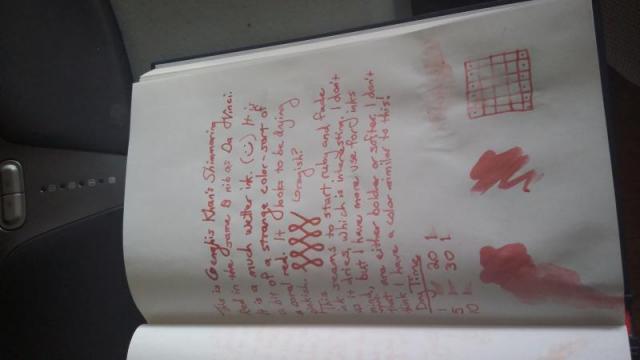 This is Genghis Khan's Shimmering
Red in the same B nib as Da Vinci.
It is a much wetter ink. (:) It is
a bit of a strange color - sort of
a coral red. It looks to be drying
pinkish. Grayish?
This ink seems to start ruby and fade
as it dries, which is interesting. I don't
but I have more use for inks
that are either bolder or softer. I don't
think I have a color similar to this.
Dry Time
1 20 1
5 30 1
10